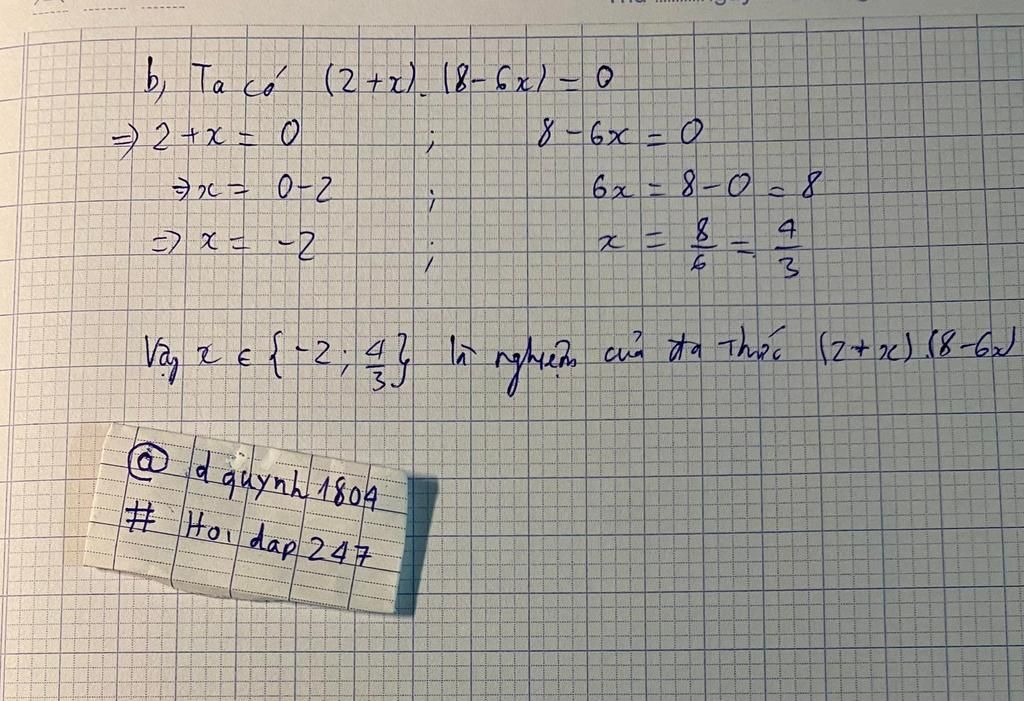 b, Ta có (2+x).(8-6x) = 0
⇒ 2+x = 0 ; 8-6x = 0
⇒ x = 0-2 ; 6x = 8-0 = 8
⇒ x = -2 ; x = 8/6 = 4/3
Vậy x ∈ {-2; 4/3} là nghiệm của đa thức (2+x)(8-6x)
@ dquynh1804
# Hoi dap 247